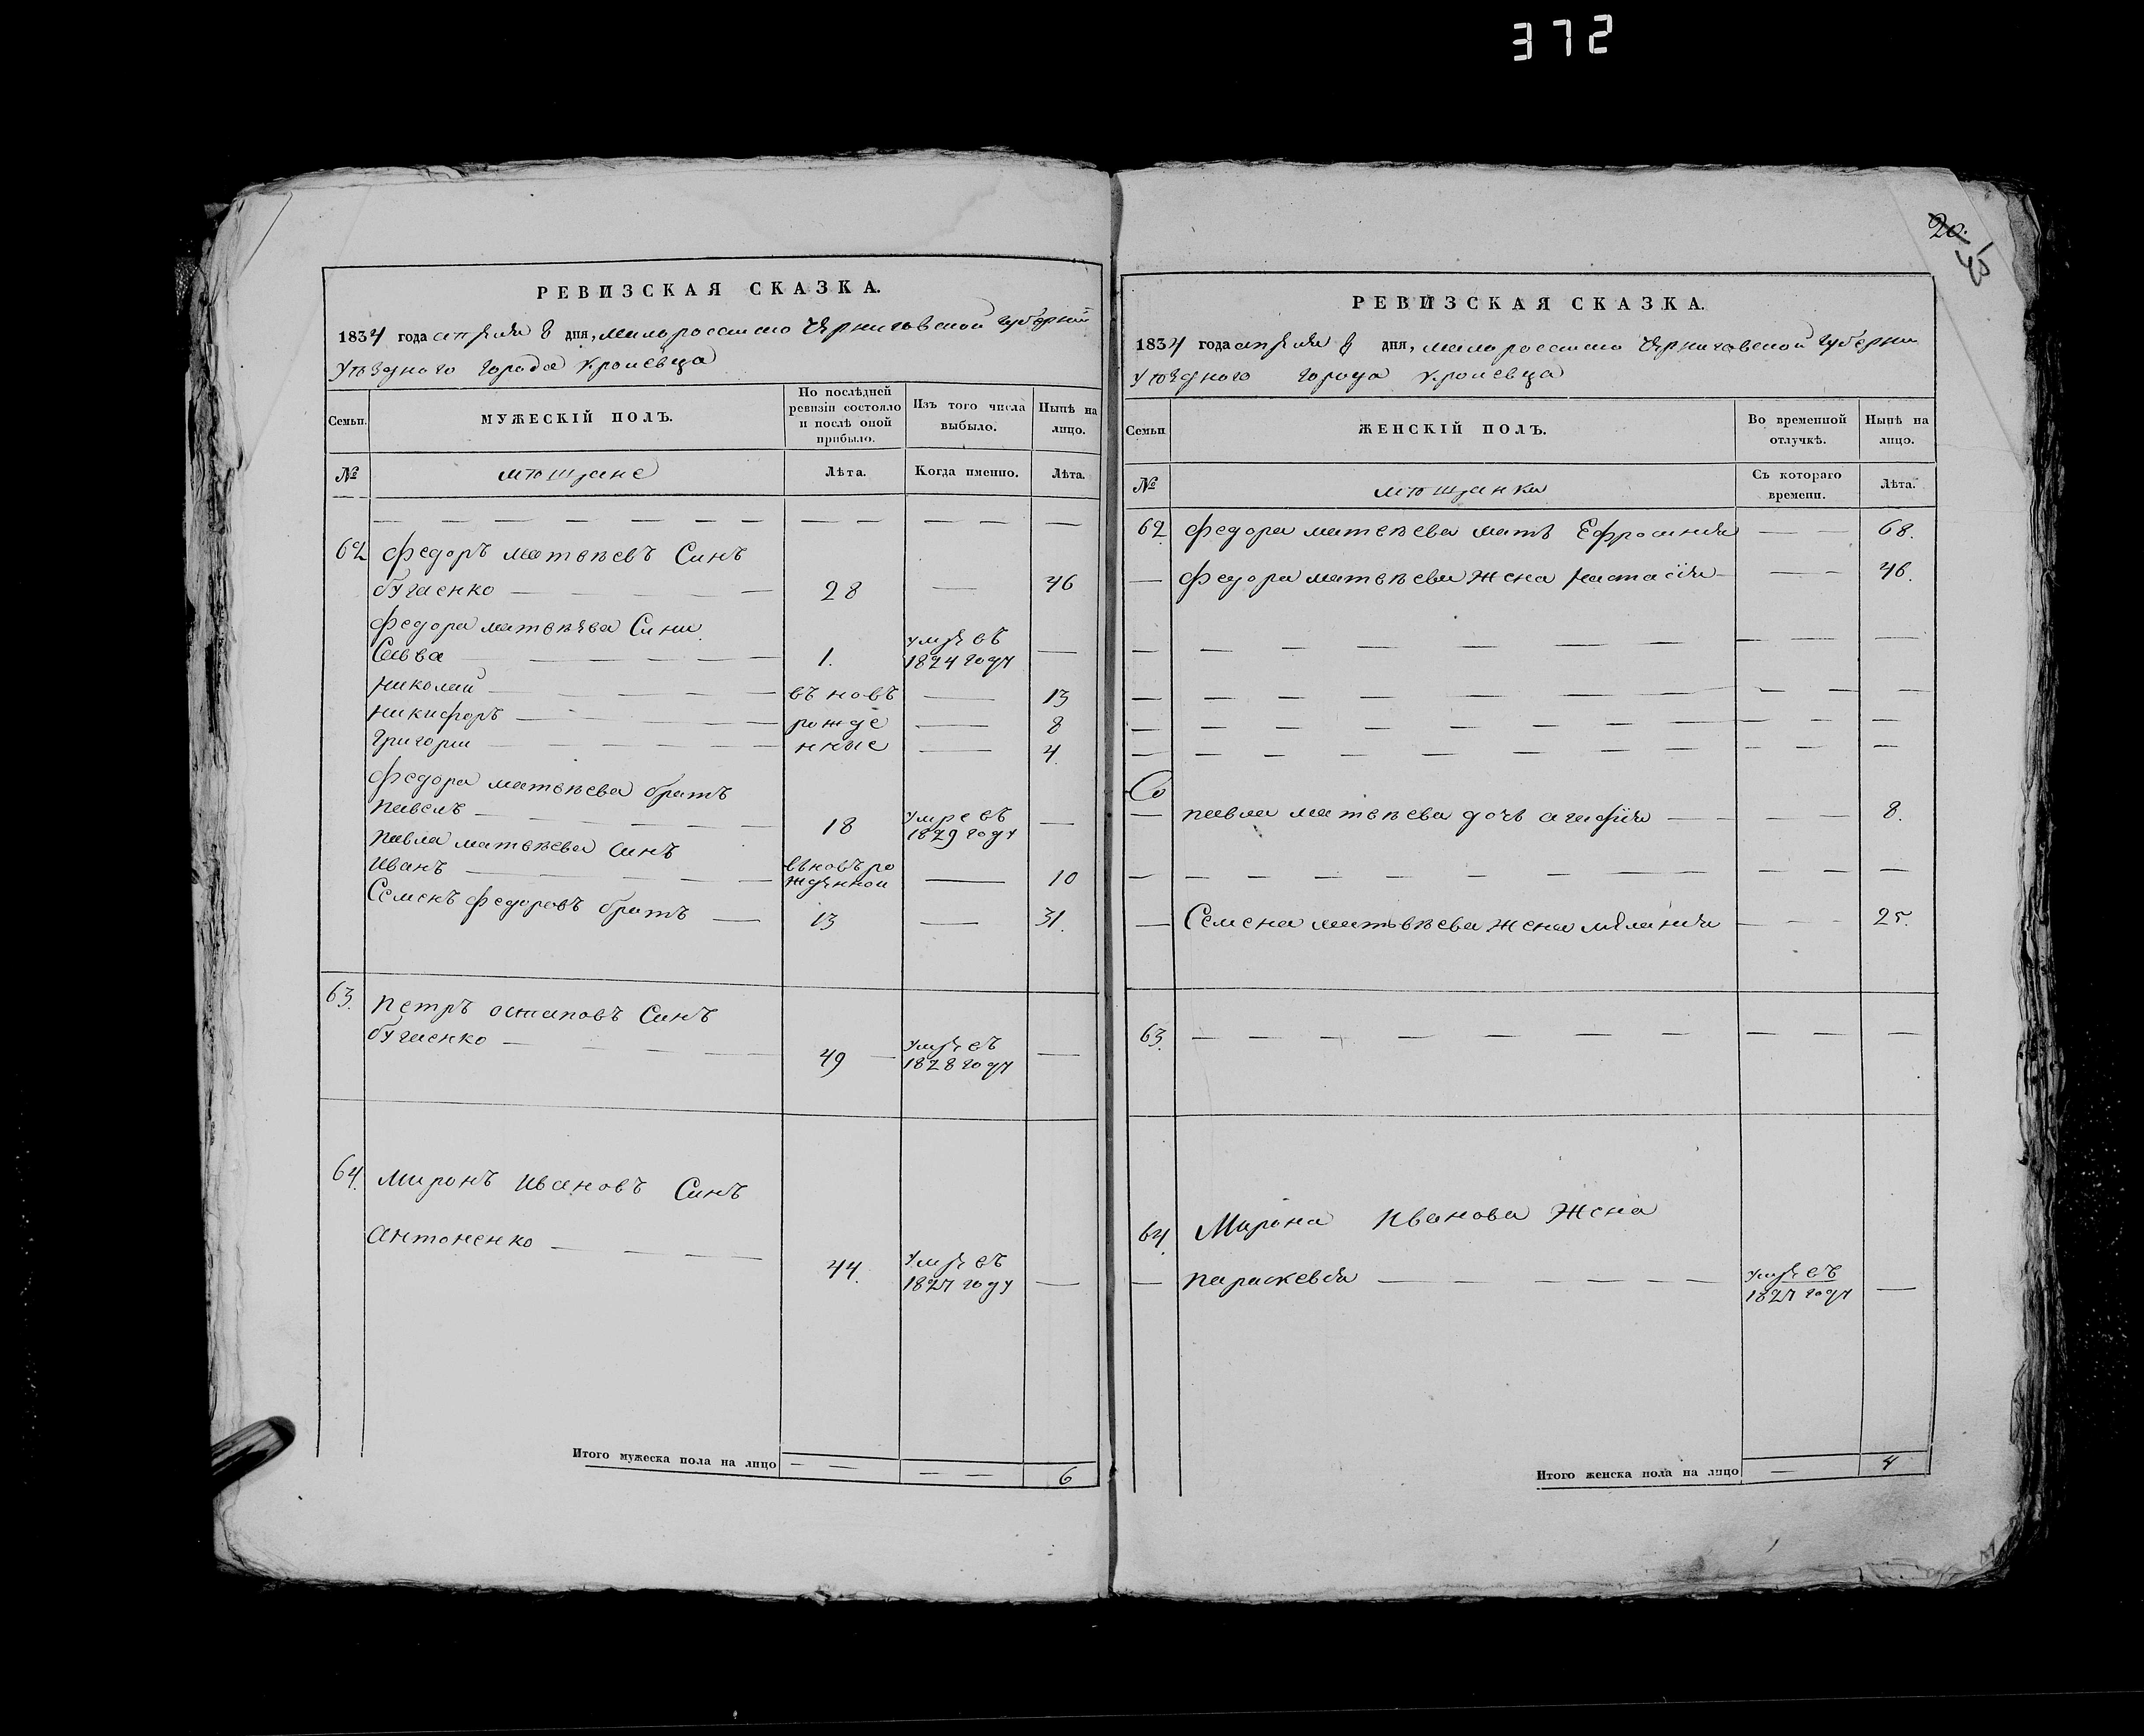 372
20.
45
РЕВИЗСКАЯ СКАЗКА.
1834 года апреля 8 дня, малороссиско Черниговской губернии
уѣздного города Кролевца
Семьи.
МУЖЕСКІЙ ПОЛЪ.
По послѣдней ревизіи состояло и послѣ оной прибыло.
Изъ того числа выбыло.
Нынѣ на лицо.
№
мѣщане
Лѣта.
Когда именно.
Лѣта.
62 Федоръ матвѣевъ Синъ
бугаенко — 28 — 46
Федора матвѣева Сини
Савва — 1. умре въ 1824 году —
николай — въ новъ — 13
никифоръ — рожде — 8
григории — нные — 4
Федора матвѣева братъ
павелъ — 18 умре въ 1829 году —
павла матвѣева синъ
иванъ — вновъ рожденной — 10
Семенъ федоровъ братъ — 13 — 31.
63. петръ остаповъ Синъ
бугаенко — 49 — умре въ 1828 году —
64. миронъ ивановъ Синъ
антоненко — 44. умре въ 1827 году —
Итого мужеска пола на лицо — — — — 6
РЕВИЗСКАЯ СКАЗКА.
1834 года апреля 8 дня, малороссиско Черниговской губерни
уѣздного города Кролевца
Семьи
ЖЕНСКІЙ ПОЛЪ.
Во временной отлучкѣ.
Нынѣ на лицо.
№
мѣщанки
Съ котораго времени.
Лѣта.
62 федора матвѣева мать Ефросиния — — 68.
— федора матвѣева жена настасія — — 46.
— павла матвѣева дочь агафія — — 8.
— Семена матьвѣева жена мелания — — 25.
63. — — — —
64. Мирона Иванова жена
— параскевия — умре въ 1827 году —
Итого женска пола на лицо — 4